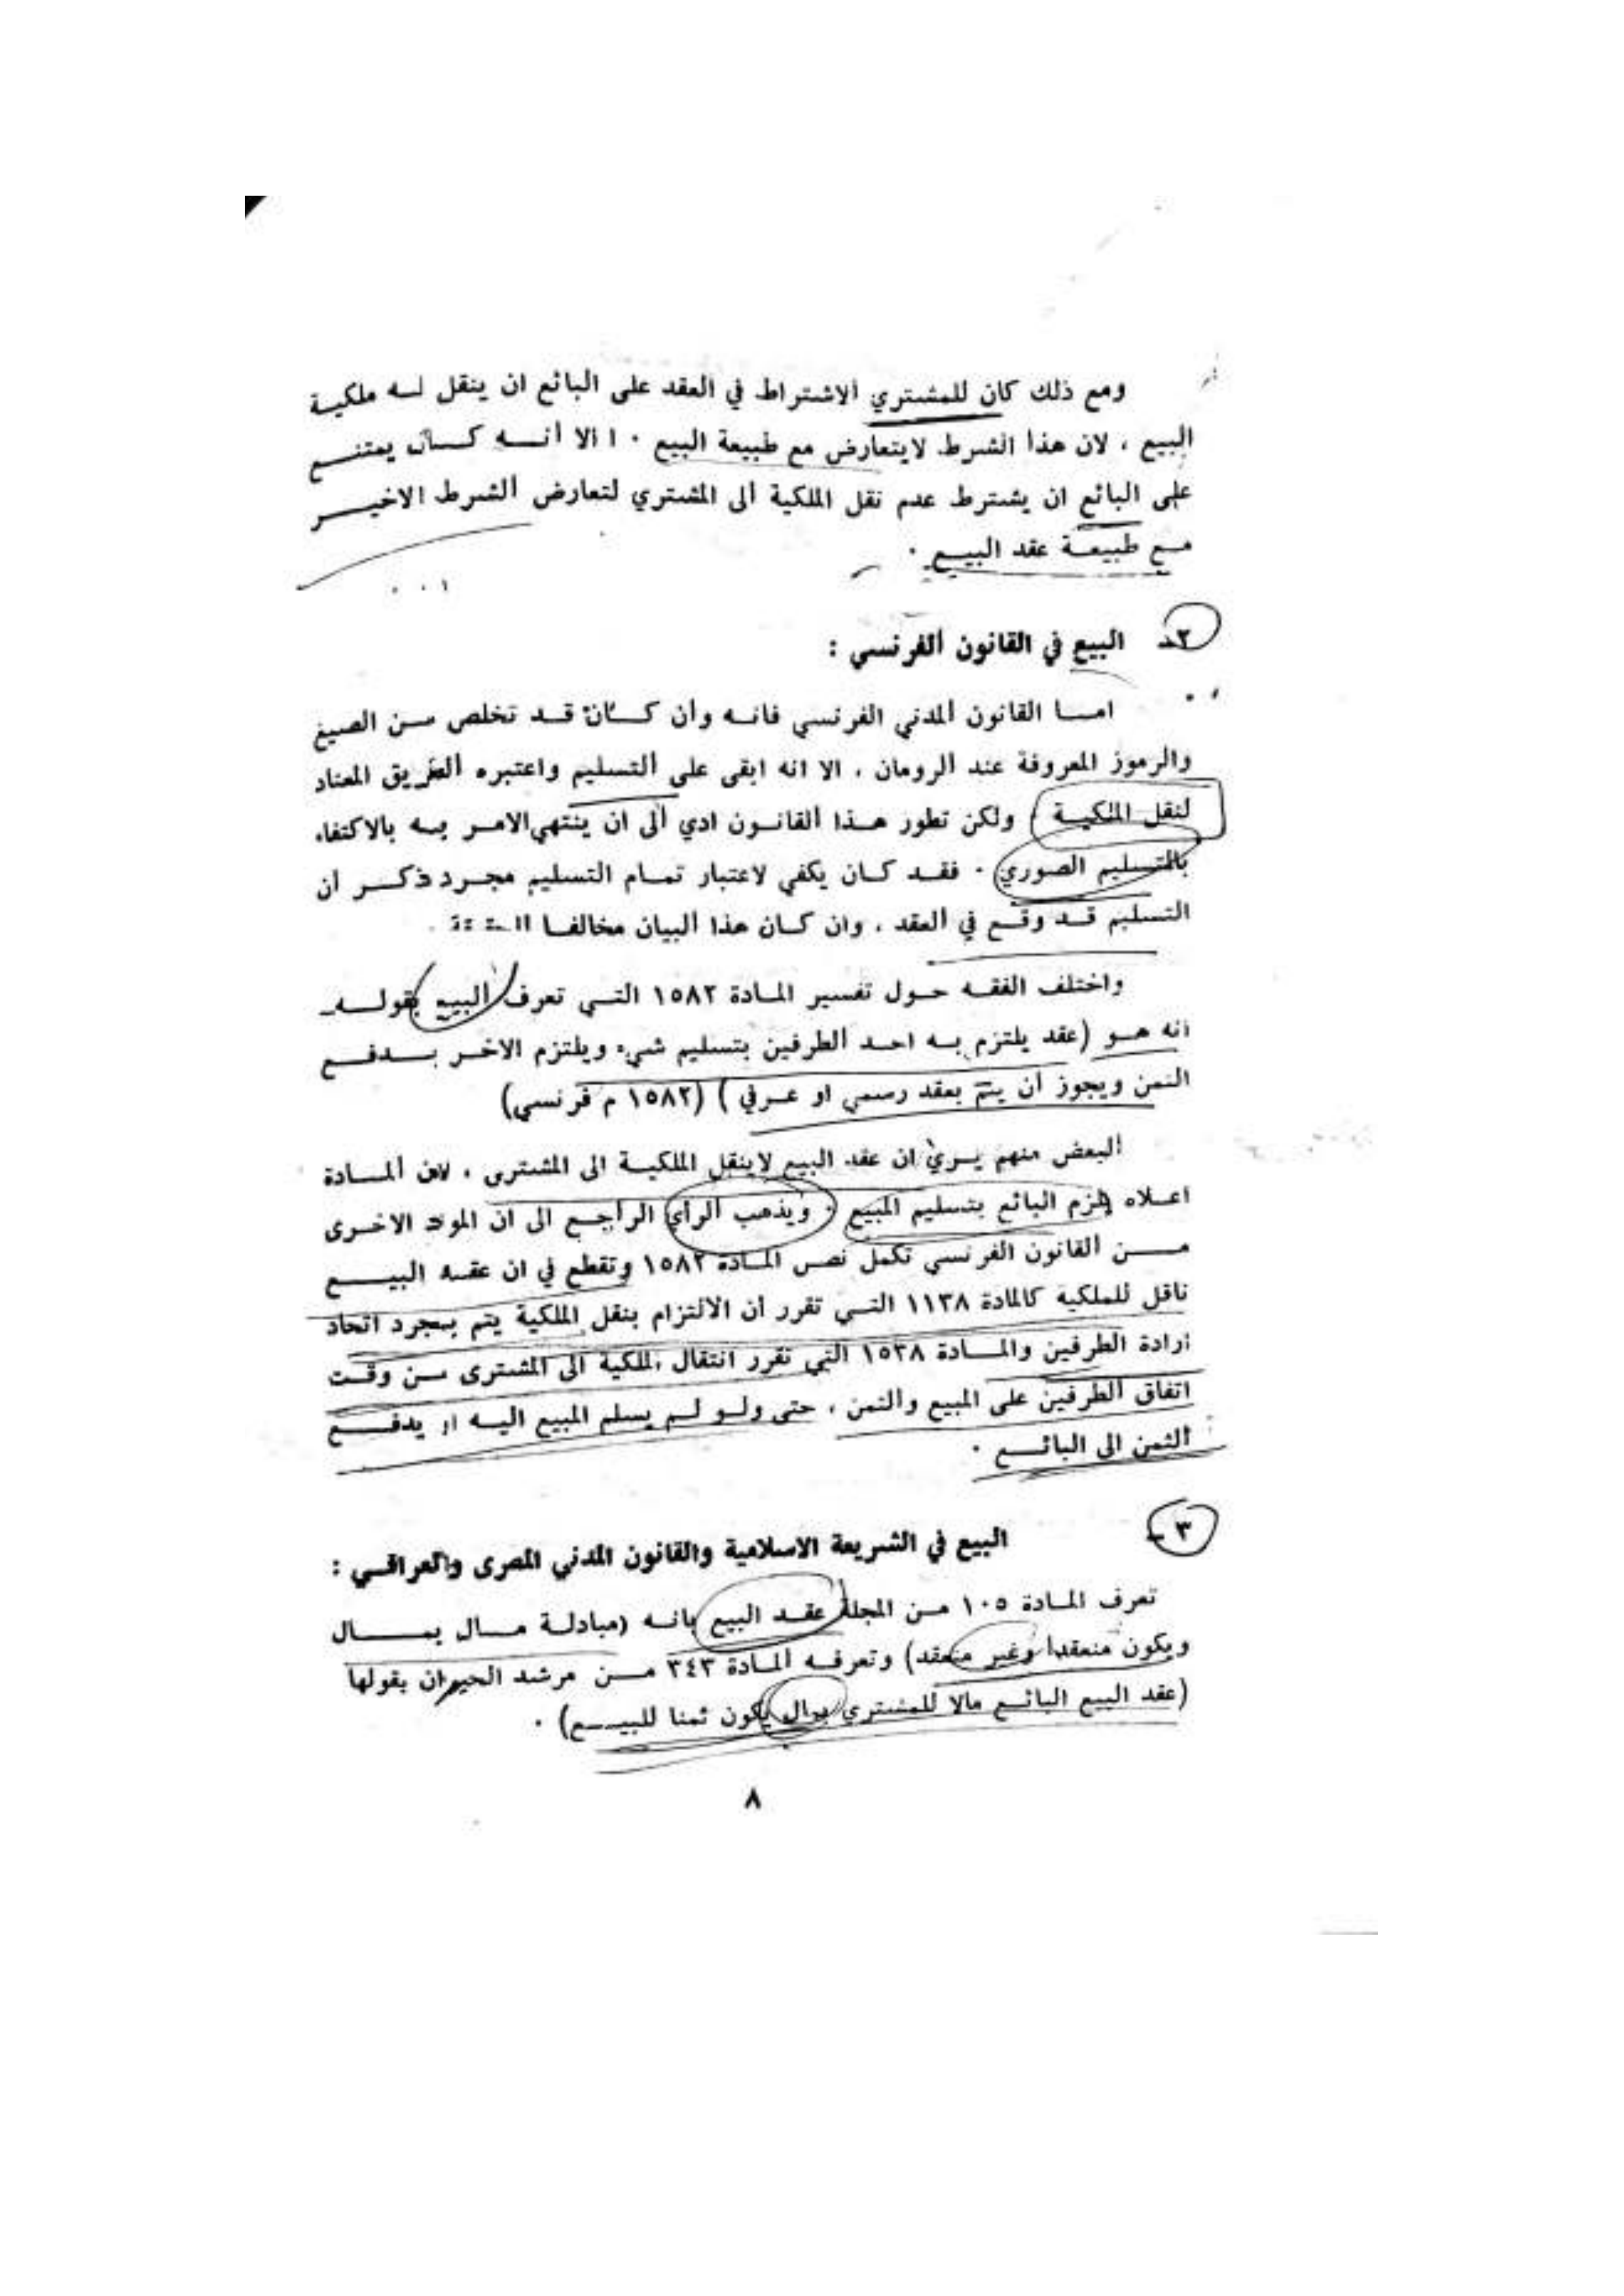 ومع ذلك كان للمشتري الاشتراط في العقد على البائع ان ينقل له ملكية
البيع ، لان هذا الشرط لايتعارض مع طبيعة البيع ٠ الا أنه كان يمتنع
على البائع ان يشترط عدم نقل الملكية الى المشتري لتعارض الشرط الاخير
مع طبيعة عقد البيع ٠
٢ـ البيع في القانون الفرنسي :
اما القانون المدني الفرنسي فانه وان كان قد تخلص من الصيغ
والرموز المعروفة عند الرومان ، الا انه ابقى على التسليم واعتبره الطريق المعتاد
لنقل الملكية ، ولكن تطور هذا القانون ادي الى ان ينتهي الامر به بالاكتفاء
بالتسليم الصوري ٠ فقد كان يكفي لاعتبار تمام التسليم مجرد ذكر ان
التسليم قد وقع في العقد ، وان كان هذا البيان مخالفا
واختلف الفقه حول تفسير المادة ١٥٨٢ التي تعرف البيع بقوله
انه هو (عقد يلتزم به احد الطرفين بتسليم شيء ويلتزم الاخر بدفع
الثمن ويجوز ان يتم بعقد رسمي او عرفي ) (١٥٨٢ م فرنسي)
البعض منهم يري ان عقد البيع لاينقل الملكية الى المشترى ، لان المادة
اعلاه تلزم البائع بتسليم المبيع ٠ ويذهب الرأي الراجع الى ان المواد الاخرى
من القانون الفرنسي تكمل نص المادة ١٥٨٢ وتقطع في ان عقد البيع
ناقل للملكية كالمادة ١١٣٨ التي تقرر ان الالتزام بنقل الملكية يتم بمجرد اتحاد
ارادة الطرفين والمادة ١٥٣٨ التي تقرر انتقال الملكية الى المشترى من وقت
اتفاق الطرفين على المبيع والثمن ، حتى ولو لم يسلم المبيع اليه او يدفع
الثمن الى البائع ٠
٣ـ البيع في الشريعة الاسلامية والقانون المدني المصرى والعراقي :
تعرف المادة ١٠٥ من المجلة عقد البيع بانه (مبادلة مال بمال
ويكون منعقدا وغير منعقد) وتعرفه المادة ٣٤٣ من مرشد الحيران بقولها
(عقد البيع البائع مالا للمشتري بمال يكون ثمنا للبيع) ٠
٨